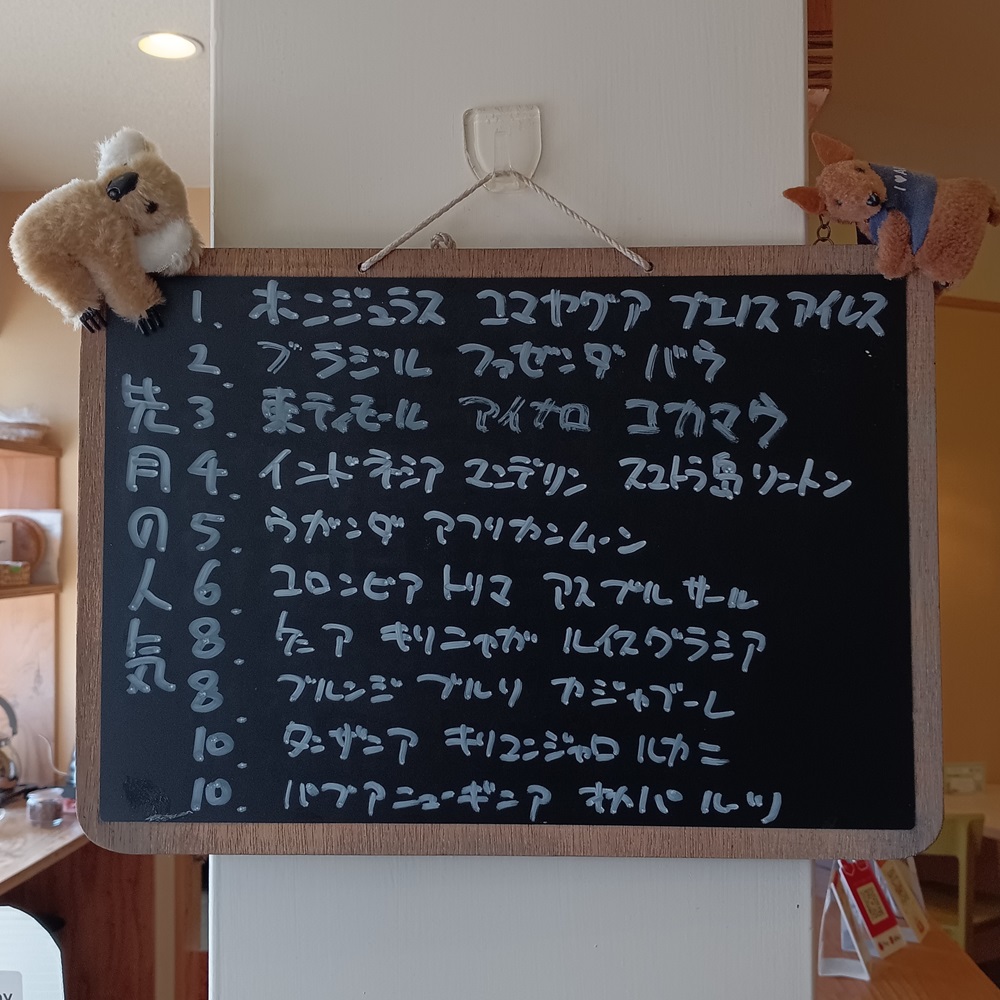 先月の人気
1. ホンジュラス コマヤグア ブエノスアイレス
2. ブラジル ファゼンダ バウ
3. 東ティモール アイナロ コカマウ
4. インドネシア マンデリン スマトラ島リントン
5. ウガンダ アフリカンムーン
6. コロンビア トリマ アスプルサール
8. ケニア キリニャガ ルイスグラシア
8. ブルンジ ブルリ カジャブーレ
10. タンザニア キリマンジャロ ルカニ
10. パプアニューギニア オパルツ